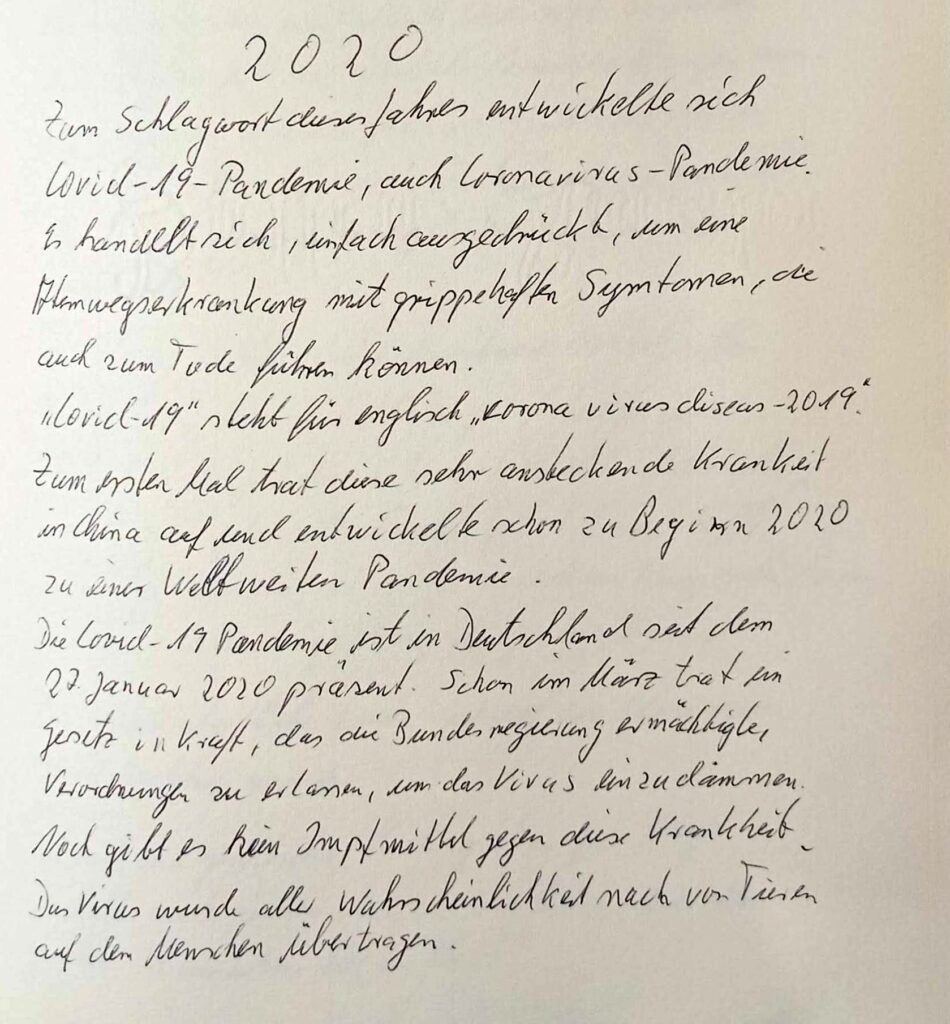 2020
Zum Schlagwort dieses Jahres entwickelte sich
Covid-19-Pandemie, auch Coronavirus-Pandemie.
Es handelt sich, einfach ausgedrückt, um eine
Atemwegserkrankung mit grippehaften Symtomen, die
auch zum Tode führen können.
"Covid-19" steht für englisch "Korona virus diseas-2019".
Zum ersten Mal trat diese sehr ansteckende Krankeit
in China auf und entwickelte schon zu Beginn 2020
zu einer Weltweiten Pandemie.
Die Covid-19 Pandemie ist in Deutschland seit dem
27. Januar 2020 präsent. Schon im März trat ein
Gesetz in Kraft, das die Bundesregierung ermächtigte,
Verordnungen zu erlassen, um das Virus einzudämmen.
Noch gibt es kein Impfmittel gegen diese Krankheit.
Das Virus wurde aller Wahrscheinlichkeit nach von Tieren
auf den Menschen übertragen.